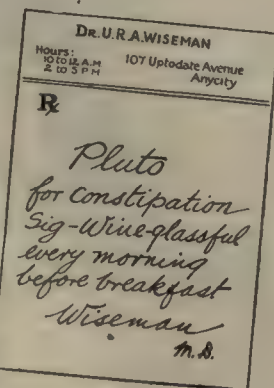 DR. U.R.A. WISEMAN
Hours:
10 to 12 A.M
2 to 5 P M
107 Uptodate Avenue
Anycity
℞
Pluto
for Constipation
Sig-Wine-glassful
every morning
before breakfast
Wiseman
M.D.